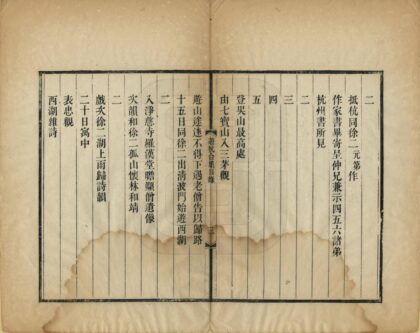 二
抵杭同徐二元第作
作家書畢寄呈仲兄兼示四五六諸弟
杭州書所見
二
三
四
五
登吳山最高處
由七寶山入三茅觀
遊杭合集目錄
遊山遂迷不得下遇老僧告以歸路
十五日同徐二出清波門始遊西湖
二
入淨慈寺羅漢堂瞻癲僧遺像
次韻和徐二孤山懷林和靖
二
戲次徐二湖上雨歸詩韻
二十日寓中
表忠觀
西湖雜詩